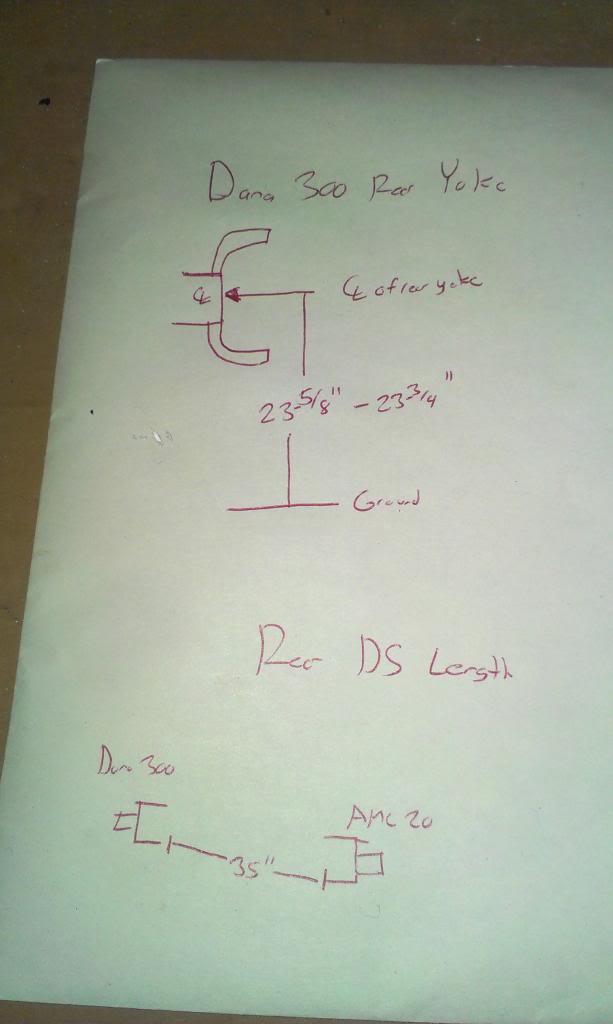 Dana 300 Rear Yoke
℄
℄ of rear yoke
23-5/8" - 23 3/4"
Ground
Rear DS Length
Dana 300
AMC 20
35"